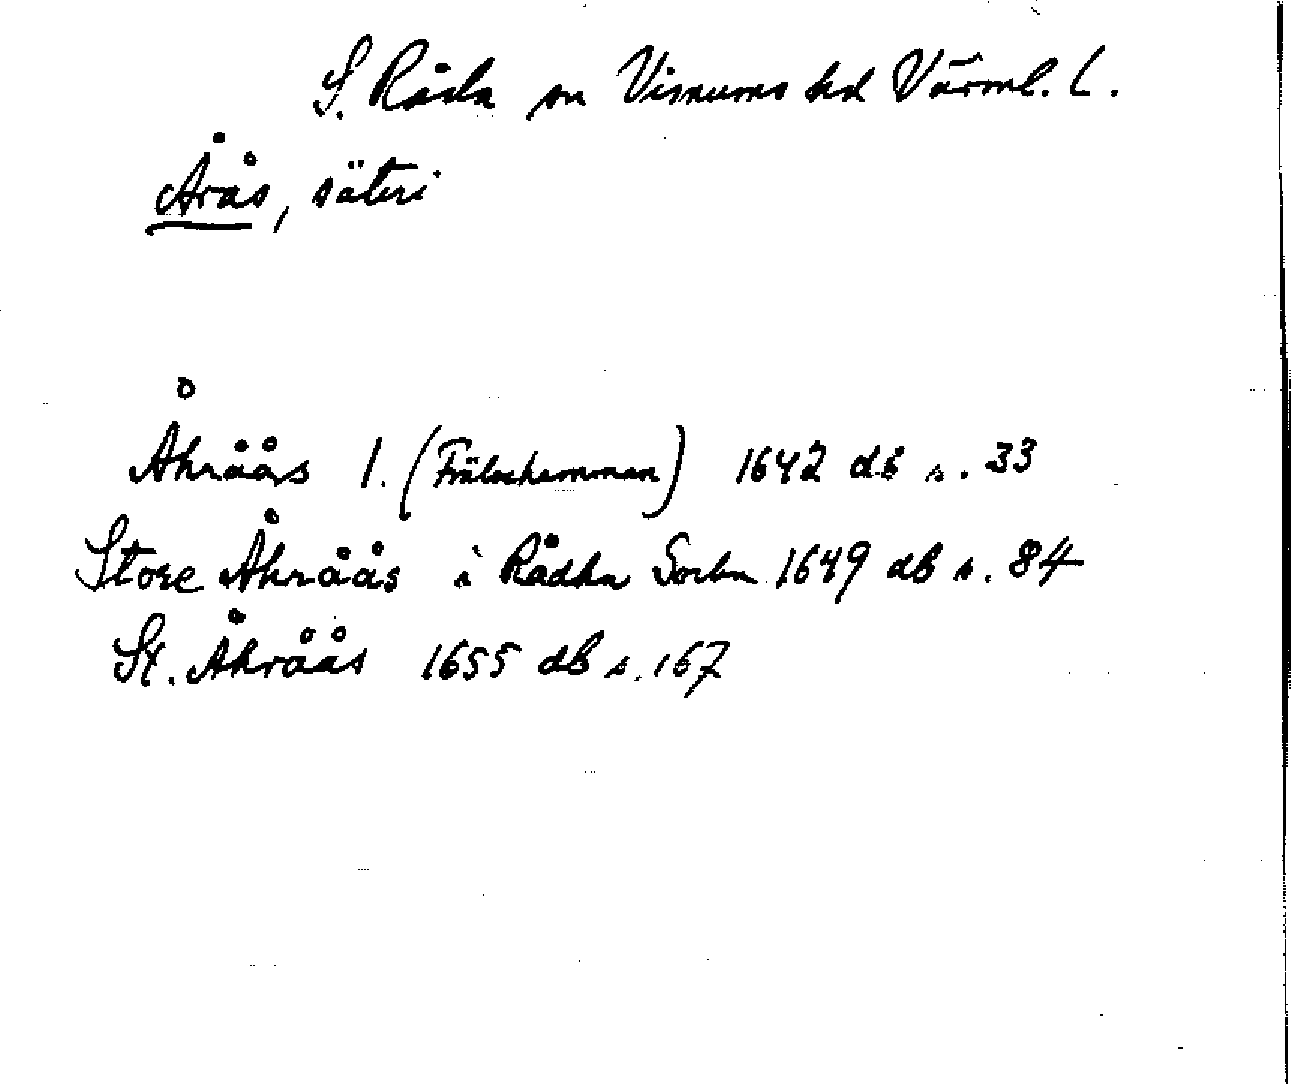 S. Råda sn Visnums hd Värml. l.
Årås, säteri
Åhråås 1. (Frälsehemman) 1642 db s. 33
Store Åhråås i Rådha Sochn 1649 db s. 84
St. Åhråås 1655 db s. 167